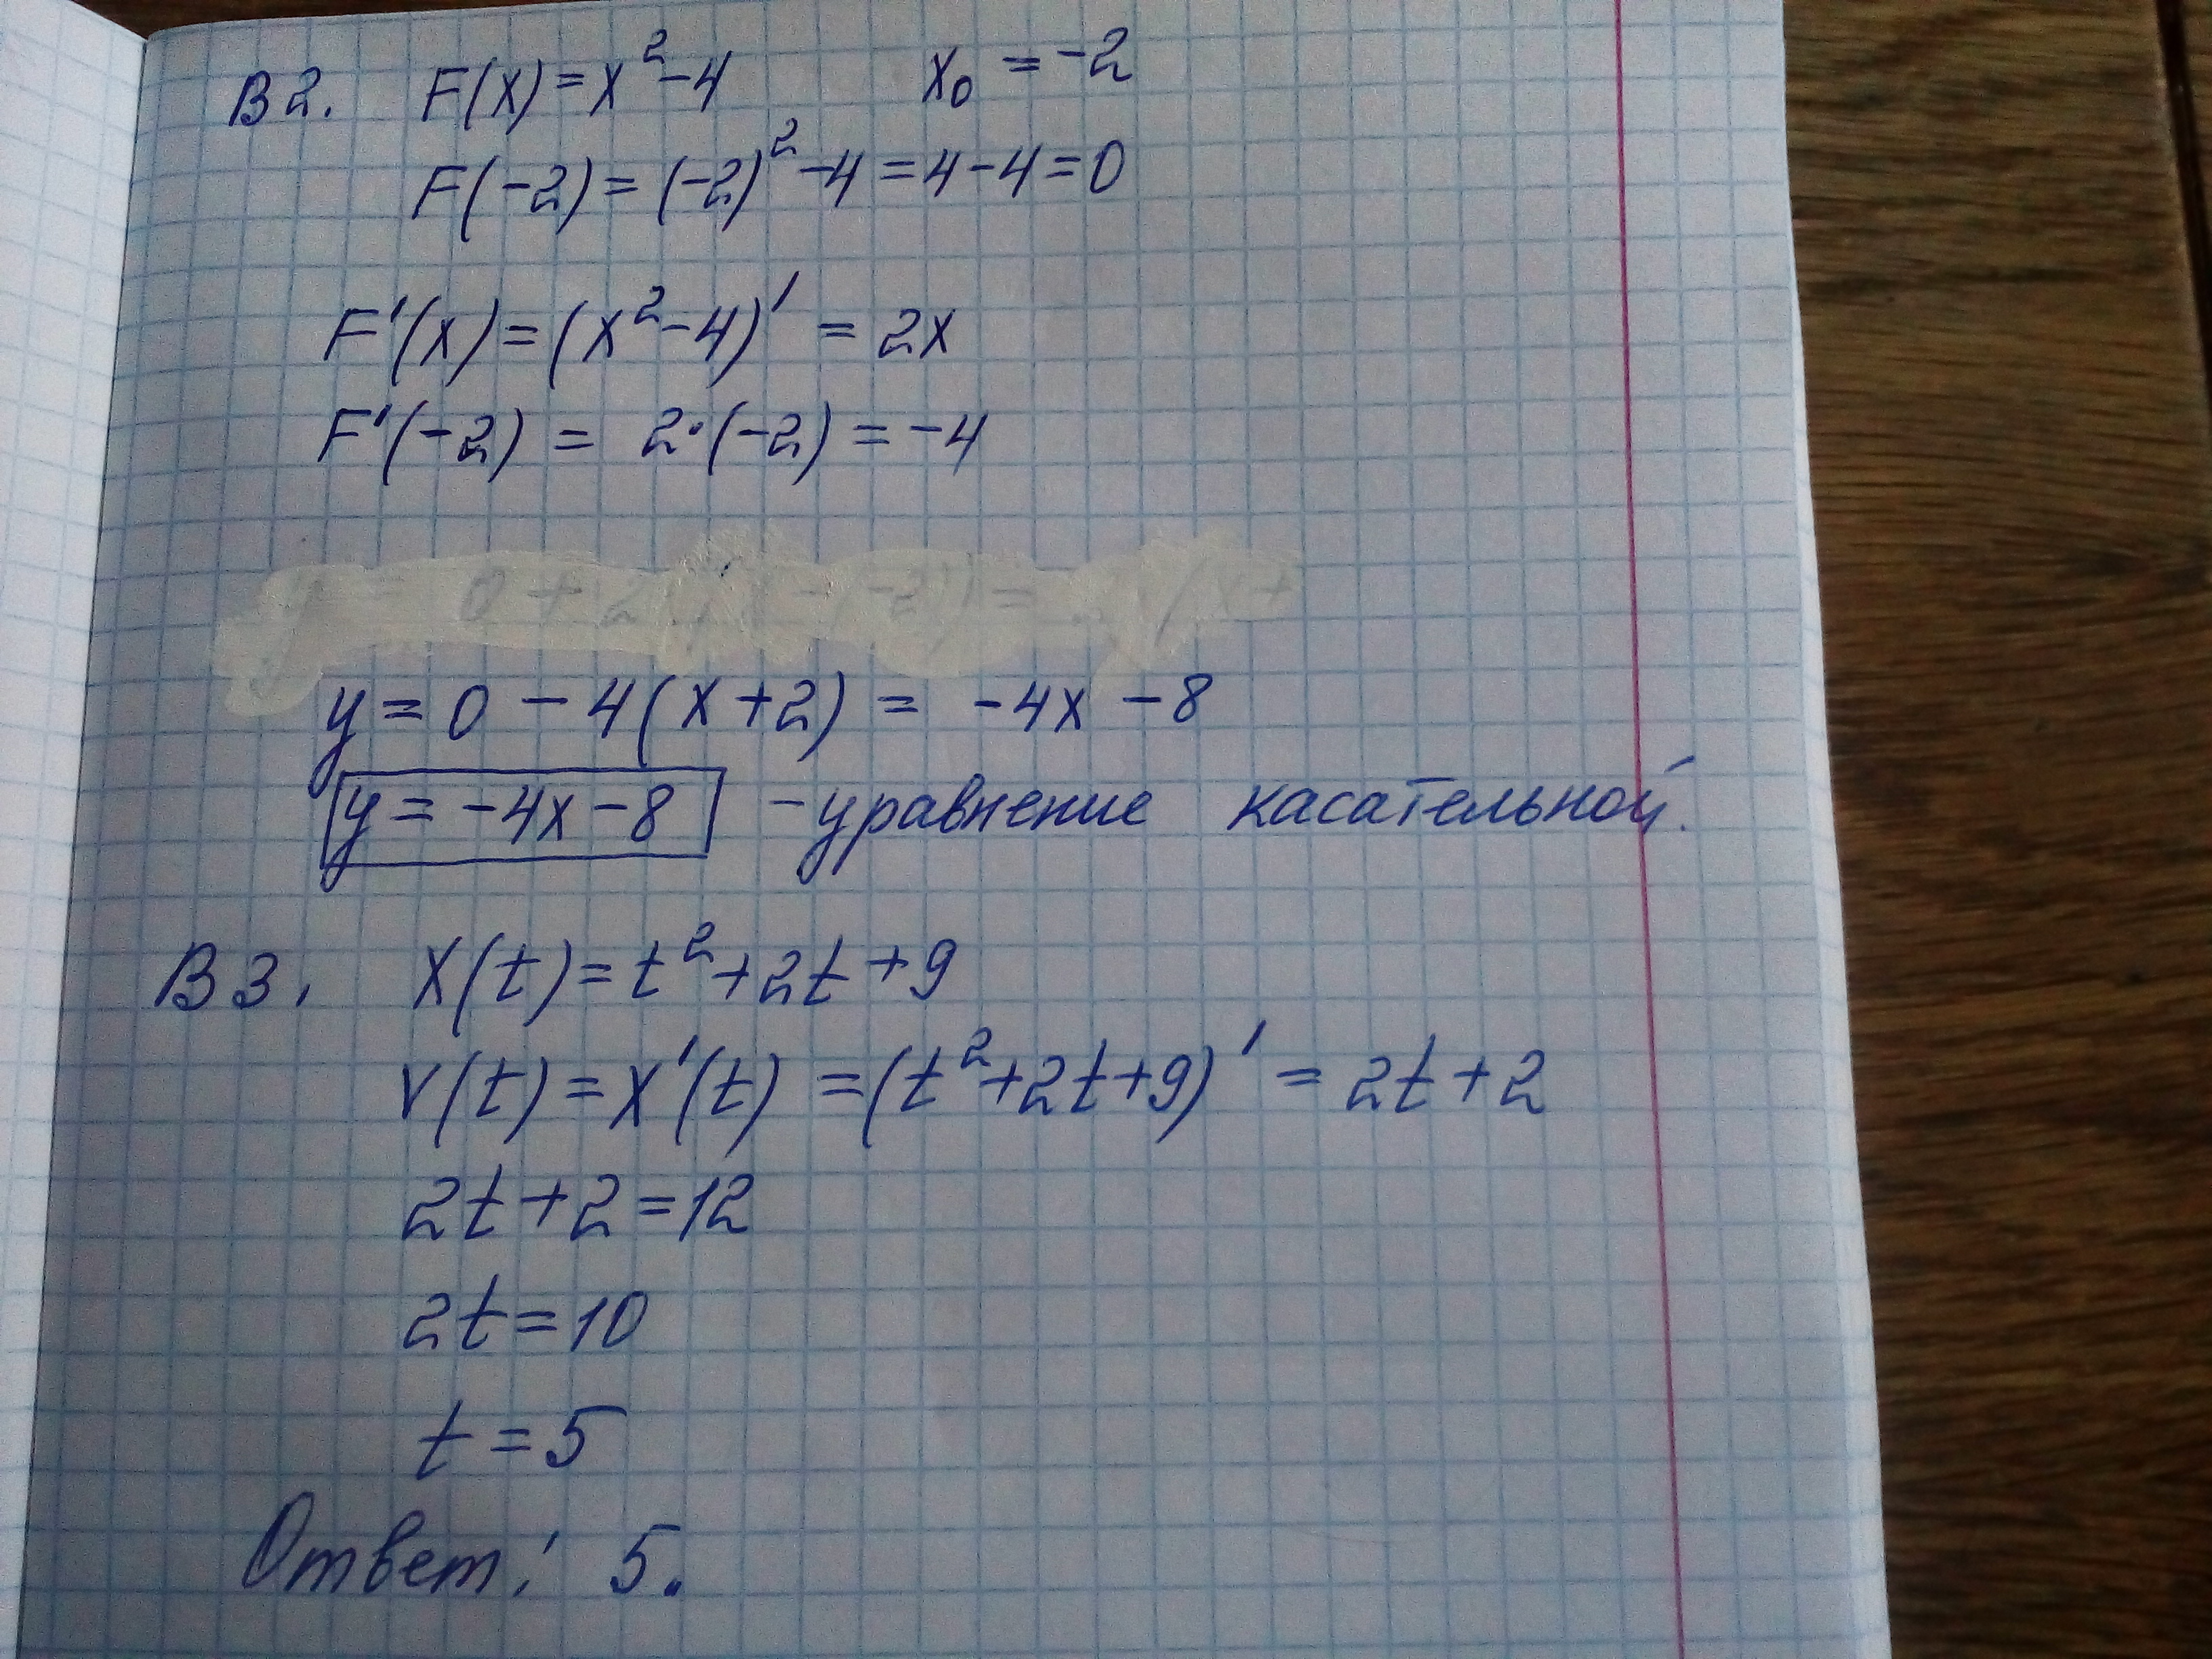 B2. F(x) = x² - 4 x₀ = -2
F(-2) = (-2)² - 4 = 4 - 4 = 0
F'(x) = (x² - 4)' = 2x
F'(-2) = 2·(-2) = -4
y = 0 - 4(x+2) = -4x - 8
y = -4x - 8 - уравнение касательной.
B3. X(t) = t² + 2t + 9
v(t) = X'(t) = (t² + 2t + 9)' = 2t + 2
2t + 2 = 12
2t = 10
t = 5
Ответ: 5.